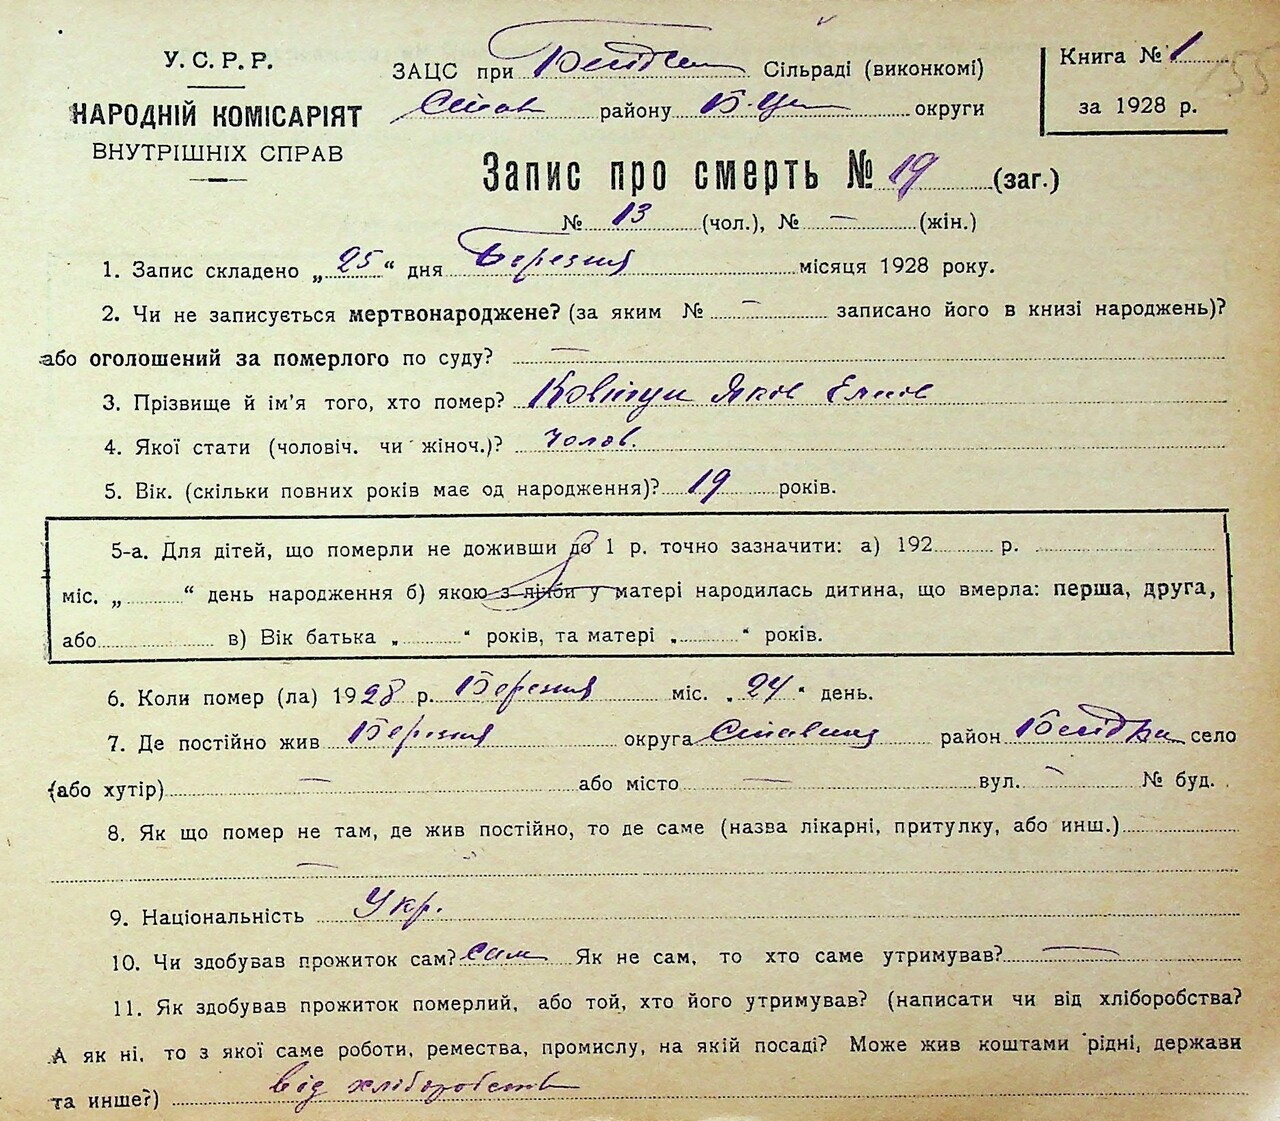 У. С. Р. Р.
НАРОДНІЙ КОМІСАРІЯТ
ВНУТРІШНІХ СПРАВ
ЗАЦС при Сільраді (виконкомі)
Став району Б-Це округи
Книга № 1
155
за 1928 р.
Запис про смерть № 19 (заг.)
№ 13 (чол.), № — (жін.)
1. Запис складено „25“ дня Березня місяця 1928 року.
2. Чи не записується мертвонароджене? (за яким № — записано його в книзі народжень)?
або оголошений за померлого по суду? —
3. Прізвище й ім'я того, хто помер? Ковтун Яків
4. Якої стати (чоловіч. чи жіноч.)? чолов.
5. Вік. (скільки повних років має од народження)? 19 років.
5-а. Для дітей, що померли не доживши до 1 р. точно зазначити: а) 192 р.
міс. „ “ день народження б) якою з лічби у матері народилась дитина, що вмерла: перша, друга,
або в) Вік батька „ “ років, та матері „ “ років.
6. Коли помер (ла) 1928 р. Березня міс. „24“ день.
7. Де постійно жив Березня округа район село
(або хутір) — або місто — вул. — № буд.
8. Як що помер не там, де жив постійно, то де саме (назва лікарні, притулку, або инш.)
—
9. Національність Укр.
10. Чи здобував прожиток сам? сам Як не сам, то хто саме утримував? —
11. Як здобував прожиток померлий, або той, хто його утримував? (написати чи від хліборобства?
А як ні, то з якої саме роботи, ремества, промислу, на якій посаді? Може жив коштами рідні, держави
та инше?) від хліборобства